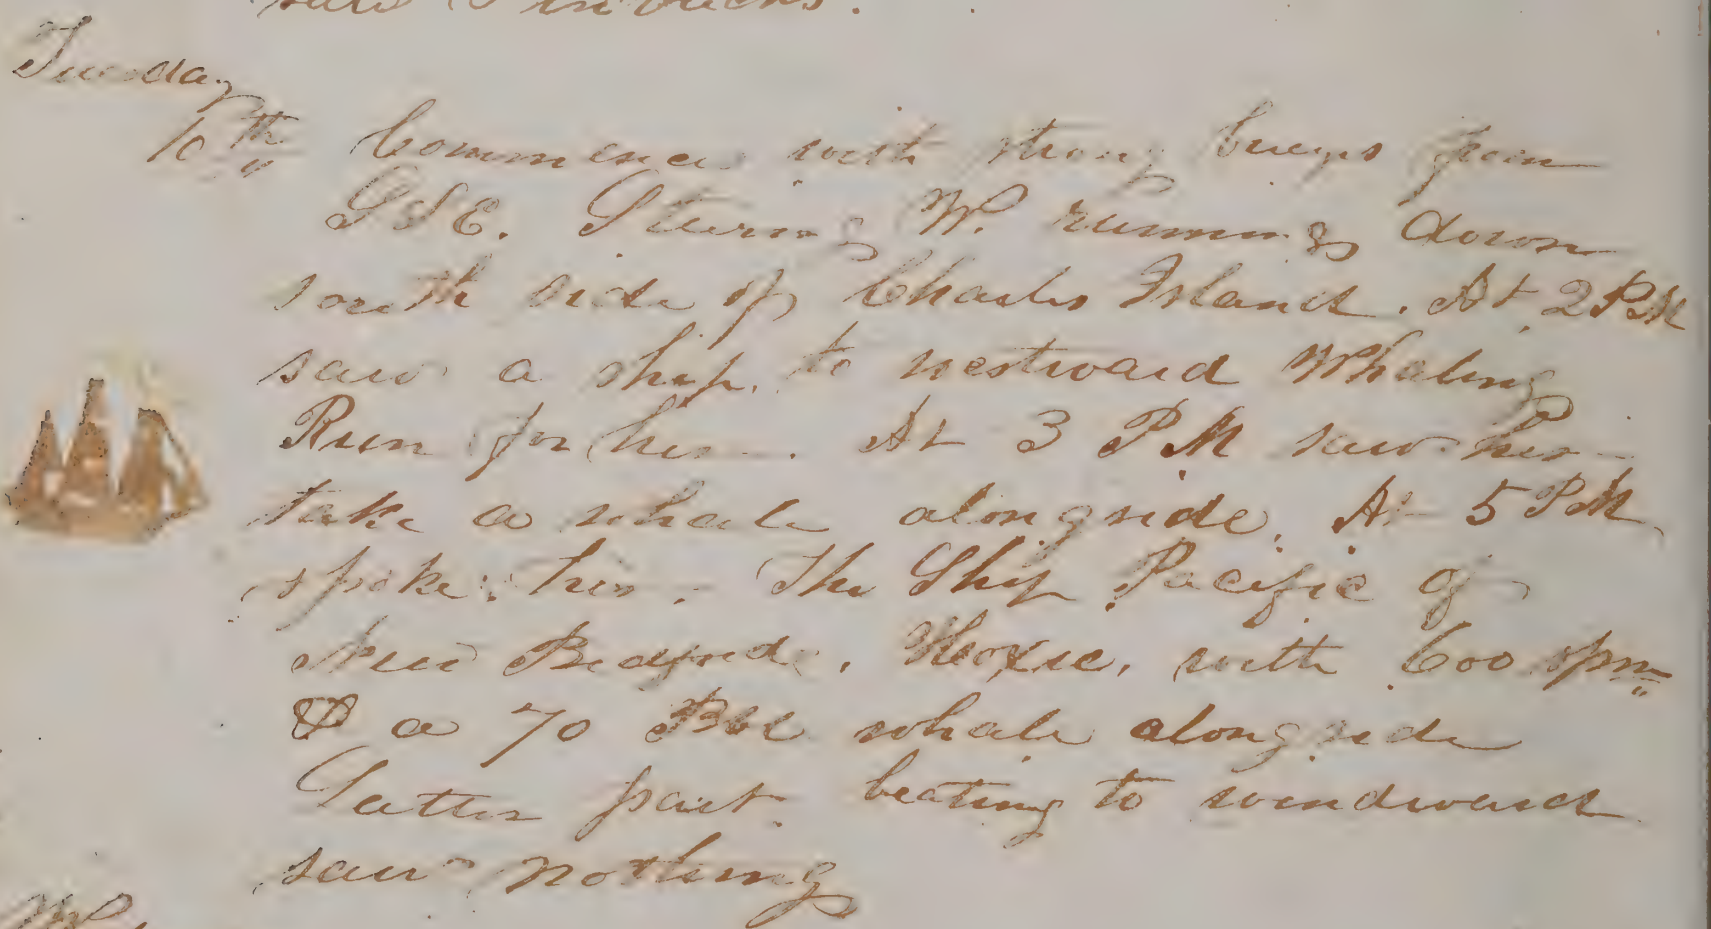 saw Finbacks.
Tuesday
10th Commences with strong breeze from
SSE. Steering W. running down
south side of Charles Island. At 2 PM
saw a ship to westward Whaling
Run for her. At 3 PM saw her
take a whale alongside. At 5 PM
spoke her. The Ship Pacific of
New Bedford. Hoxie, with 600 spm
& a 70 Bbl whale alongside
Latter part beating to windward
saw nothing